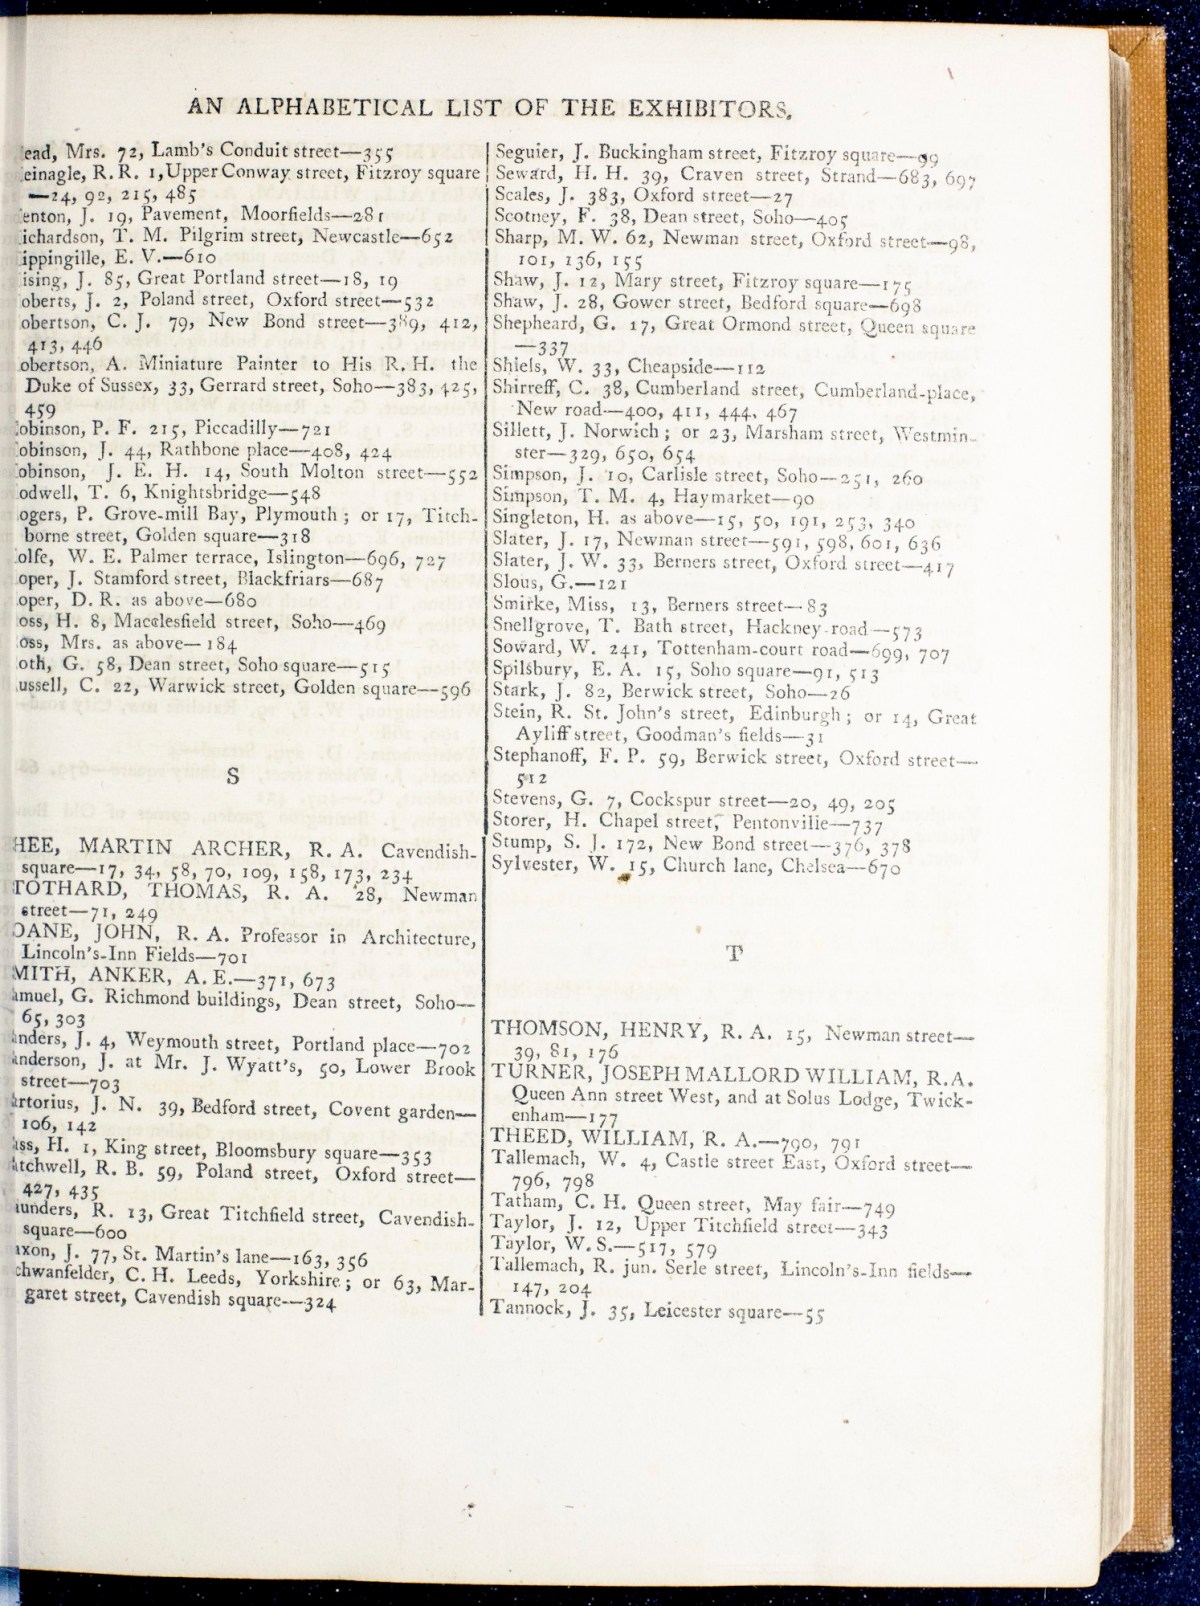 AN ALPHABETICAL LIST OF THE EXHIBITORS.
ead, Mrs. 72, Lamb's Conduit street—355
einagle, R. R. 1, Upper Conway street, Fitzroy square
—24, 92, 215, 485
enton, J. 19, Pavement, Moorfields—281
ichardson, T. M. Pilgrim street, Newcastle—652
ippingille, E. V.—610
ising, J. 85, Great Portland street—18, 19
oberts, J. 2, Poland street, Oxford street—532
obertson, C. J. 79, New Bond street—389, 412,
413, 446
obertson, A. Miniature Painter to His R. H. the
Duke of Sussex, 33, Gerrard street, Soho—383, 425,
459
obinson, P. F. 215, Piccadilly—721
obinson, J. 44, Rathbone place—408, 424
obinson, J. E. H. 14, South Molton street—552
odwell, T. 6, Knightsbridge—548
ogers, P. Grove-mill Bay, Plymouth; or 17, Titch-
borne street, Golden square—318
olfe, W. E. Palmer terrace, Islington—696, 727
oper, J. Stamford street, Blackfriars—687
oper, D. R. as above—680
oss, H. 8, Macclesfield street, Soho—469
oss, Mrs. as above—184
oth, G. 58, Dean street, Soho square—515
ussell, C. 22, Warwick street, Golden square—596
S
HEE, MARTIN ARCHER, R. A. Cavendish-
square—17, 34, 58, 70, 109, 158, 173, 234
TOTHARD, THOMAS, R. A. 28, Newman
street—71, 249
OANE, JOHN, R. A. Professor in Architecture,
Lincoln's-Inn Fields—701
MITH, ANKER, A. E.—371, 673
amuel, G. Richmond buildings, Dean street, Soho—
65, 303
anders, J. 4, Weymouth street, Portland place—702
anderson, J. at Mr. J. Wyatt's, 50, Lower Brook
street—703
artorius, J. N. 39, Bedford street, Covent garden—
106, 142
ass, H. 1, King street, Bloomsbury square—353
atchwell, R. B. 59, Poland street, Oxford street—
427, 435
aunders, R. 13, Great Titchfield street, Cavendish-
square—600
axon, J. 77, St. Martin's lane—163, 356
chwanfelder, C. H. Leeds, Yorkshire; or 63, Mar-
garet street, Cavendish square—324
Seguier, J. Buckingham street, Fitzroy square—99
Seward, H. H. 39, Craven street, Strand—683, 697
Scales, J. 383, Oxford street—27
Scotney, F. 38, Dean street, Soho—405
Sharp, M. W. 62, Newman street, Oxford street—98,
101, 136, 155
Shaw, J. 12, Mary street, Fitzroy square—175
Shaw, J. 28, Gower street, Bedford square—698
Shepheard, G. 17, Great Ormond street, Queen square
—337
Shiels, W. 33, Cheapside—112
Shirreff, C. 38, Cumberland street, Cumberland-place,
New road—400, 411, 444, 467
Sillett, J. Norwich; or 23, Marsham street, Westmin-
ster—329, 650, 654
Simpson, J. 10, Carlisle street, Soho—251, 260
Simpson, T. M. 4, Haymarket—90
Singleton, H. as above—15, 50, 191, 253, 340
Slater, J. 17, Newman street—591, 598, 601, 636
Slater, J. W. 33, Berners street, Oxford street—417
Slous, G.—121
Smirke, Miss, 13, Berners street—83
Snellgrove, T. Bath street, Hackney-road—573
Soward, W. 241, Tottenham-court road—699, 707
Spilsbury, E. A. 15, Soho square—91, 513
Stark, J. 82, Berwick street, Soho—26
Stein, R. St. John's street, Edinburgh; or 14, Great
Ayliff street, Goodman's fields—31
Stephanoff, F. P. 59, Berwick street, Oxford street—
512
Stevens, G. 7, Cockspur street—20, 49, 205
Storer, H. Chapel street, Pentonville—737
Stump, S. J. 172, New Bond street—376, 378
Sylvester, W. 15, Church lane, Chelsea—670
T
THOMSON, HENRY, R. A. 15, Newman street—
39, 81, 176
TURNER, JOSEPH MALLORD WILLIAM, R. A.
Queen Ann street West, and at Solus Lodge, Twick-
enham—177
THEED, WILLIAM, R. A.—790, 791
Tallemach, W. 4, Castle street East, Oxford street—
796, 798
Tatham, C. H. Queen street, May fair—749
Taylor, J. 12, Upper Titchfield street—343
Taylor, W. S.—517, 579
Tallemach, R. jun. Serle street, Lincoln's-Inn fields—
147, 204
Tannock, J. 35, Leicester square—55